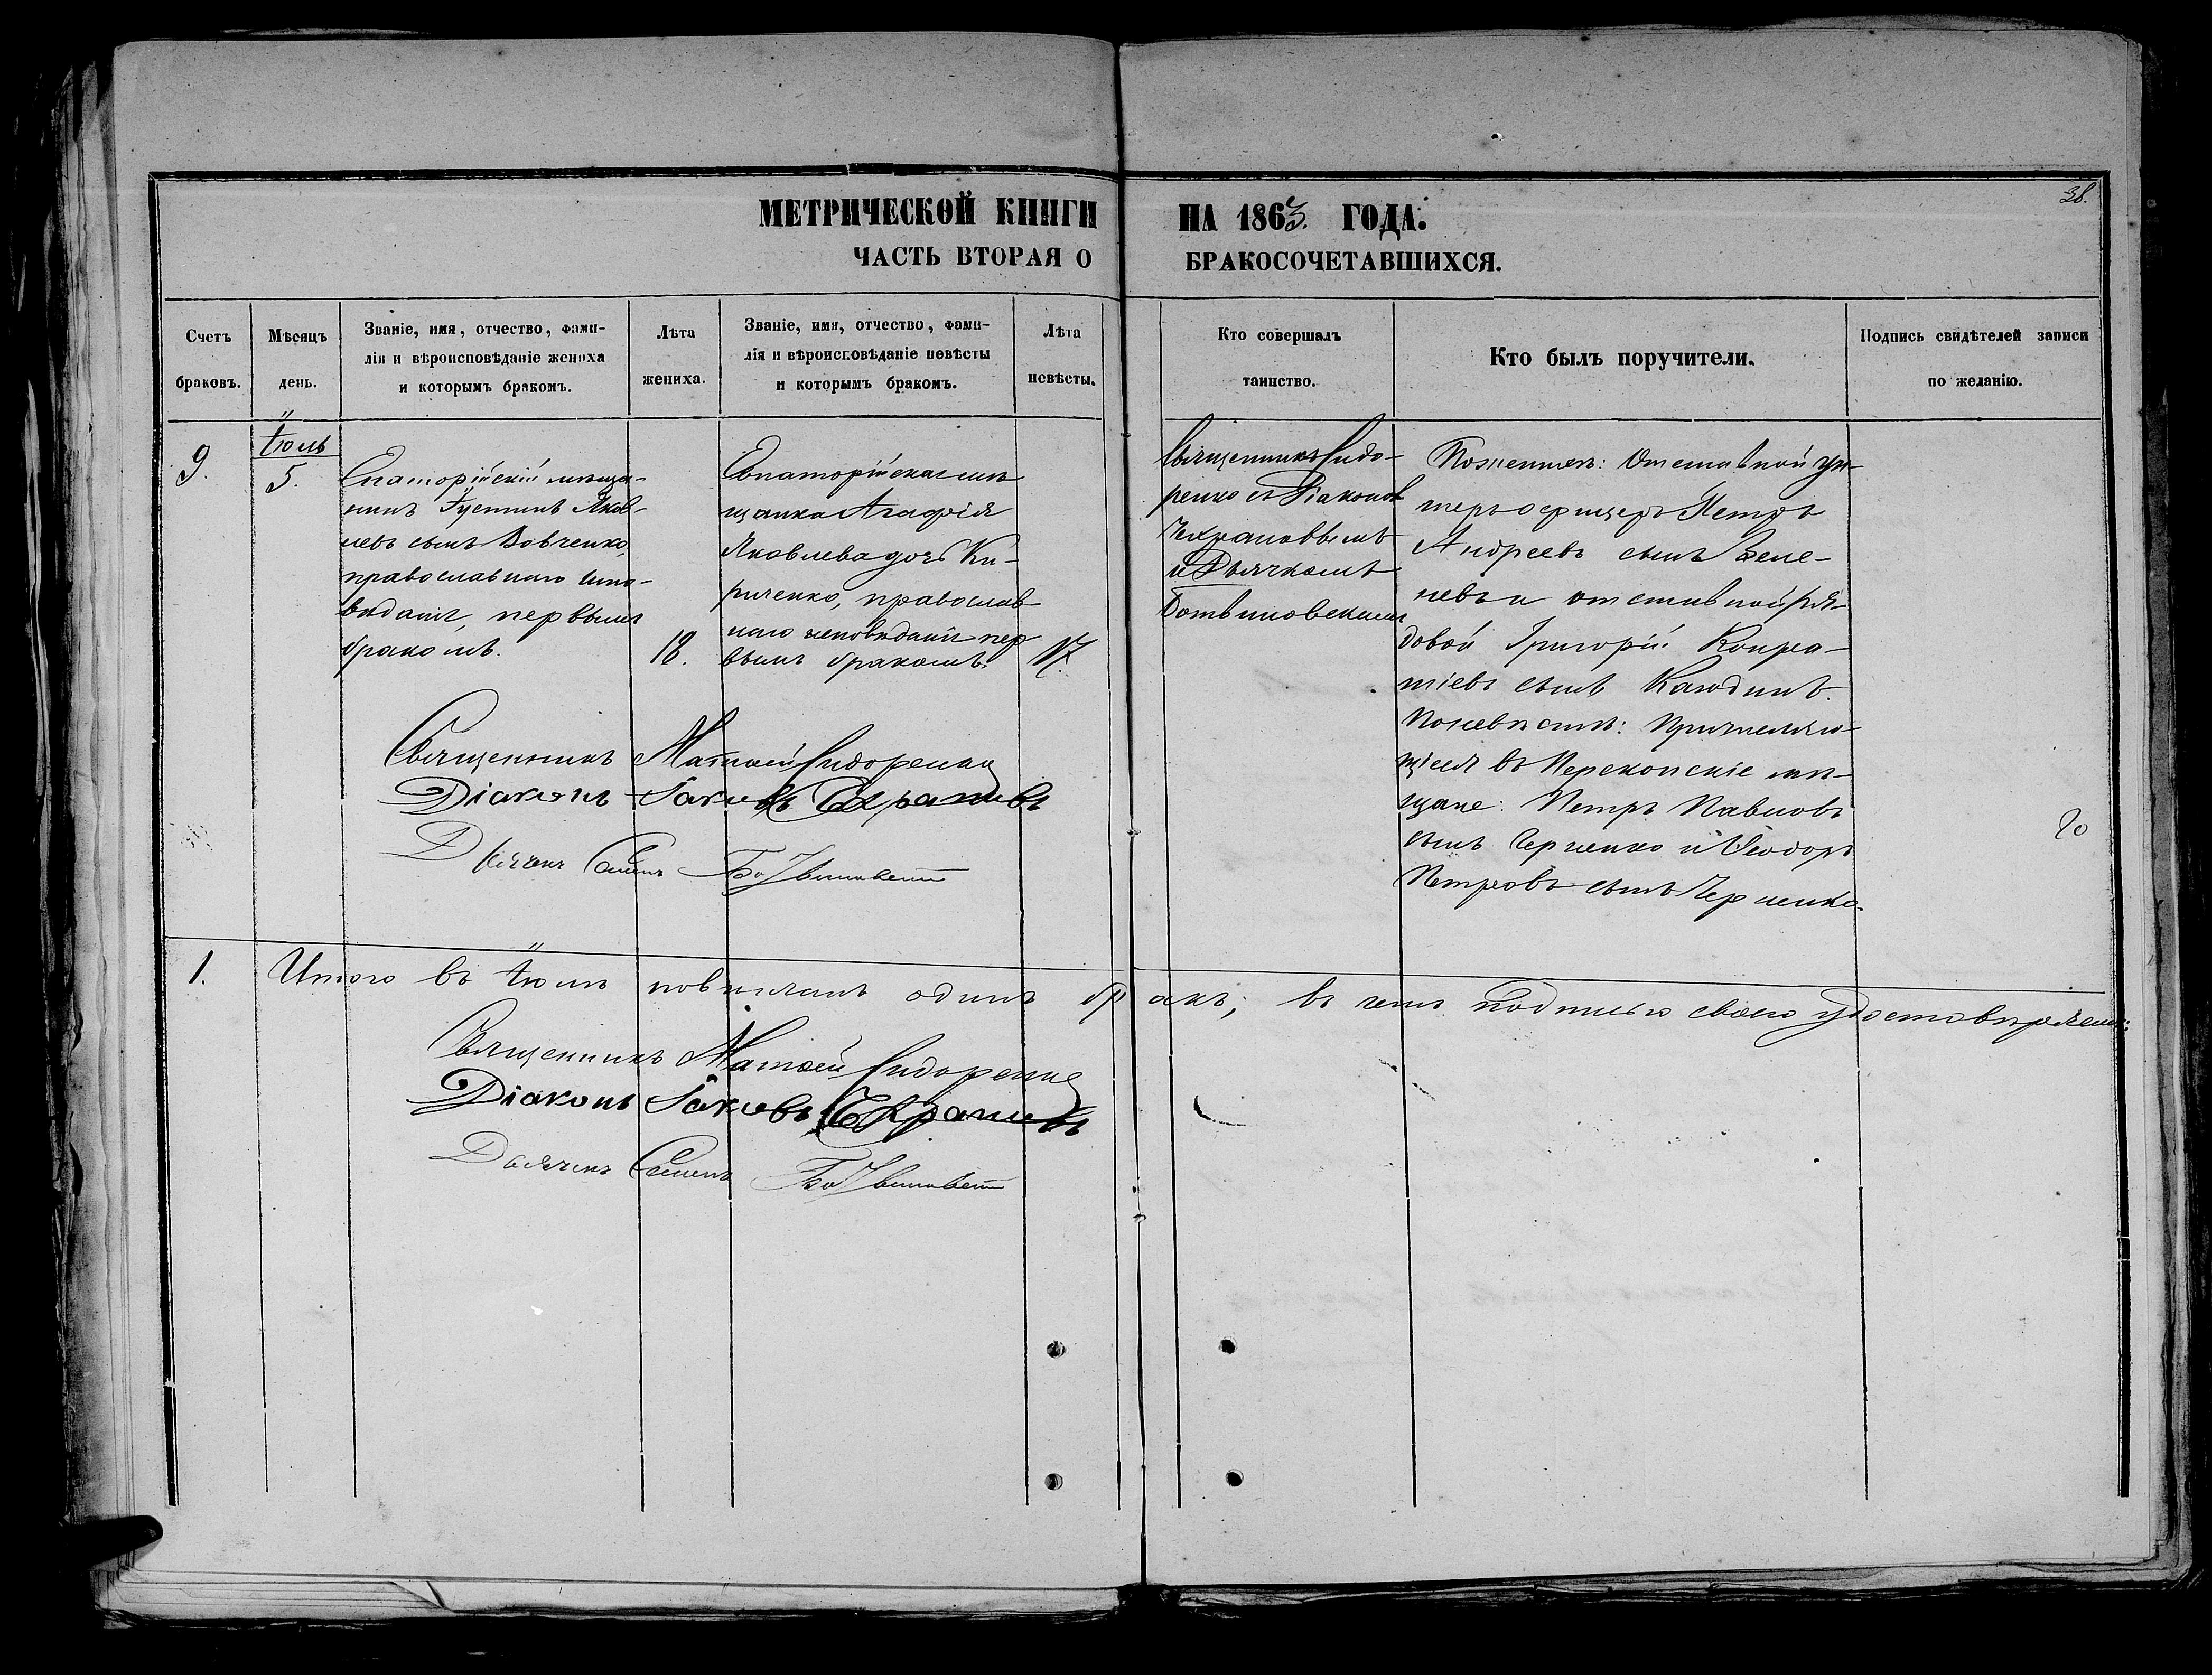 38.
МЕТРИЧЕСКОЙ КНИГИ НА 1863. ГОДА.
ЧАСТЬ ВТОРАЯ О БРАКОСОЧЕТАВШИХСЯ.
Счетъ
браковъ.
Мѣсяцъ
день.
Званіе, имя, отчество, фами-
лія и вѣроисповѣданіе жениха
и которымъ бракомъ.
Лѣта
жениха.
Званіе, имя, отчество, фами-
лія и вѣроисповѣданіе невѣсты
и которымъ бракомъ.
Лѣта
невѣсты.
Кто совершалъ
таинство.
Кто былъ поручители.
Подпись свидѣтелей записи
по желанію.
9.
Іюль
5.
Евпаторійскій мѣща-
нинъ Іустинъ Яков-
левъ сынъ Вовченко,
православнаго испо-
вѣданія, первымъ
бракомъ.
18.
Евпаторійская мѣ
щанка Агафія
Яковлева дочь Ки-
риченко, православ-
наго исповѣданія пер
вымъ бракомъ.
17.
Священникъ Сидо-
ренко съ Діакономъ
Чехрановымъ
и Дьячкомъ
Ботвиновскимъ
По женихѣ: Отставной ун-
теръ офицеръ Петръ
Андреевъ сынъ
и отставной ря-
довой Григорій Кондра-
тіевъ сынъ
По невѣстѣ: Причисляю-
щіеся въ Перекопскіе мѣ-
щане: Петръ Павловъ
сынъ Черненко и Ѳеодоръ
Петровъ сынъ Черненко.
Священникъ Матѳей Сидоренко
Діаконъ Іаковъ Чехрановъ
Дьячекъ Семенъ Ботвиновскій
1. Итого въ Іюлѣ повѣнчанъ одинъ бракъ; въ чемъ подписью своею удостовѣряемъ:
Священникъ Матѳей Сидоренко
Діаконъ Іаковъ Чехрановъ
Дьячекъ Семенъ Ботвиновскій